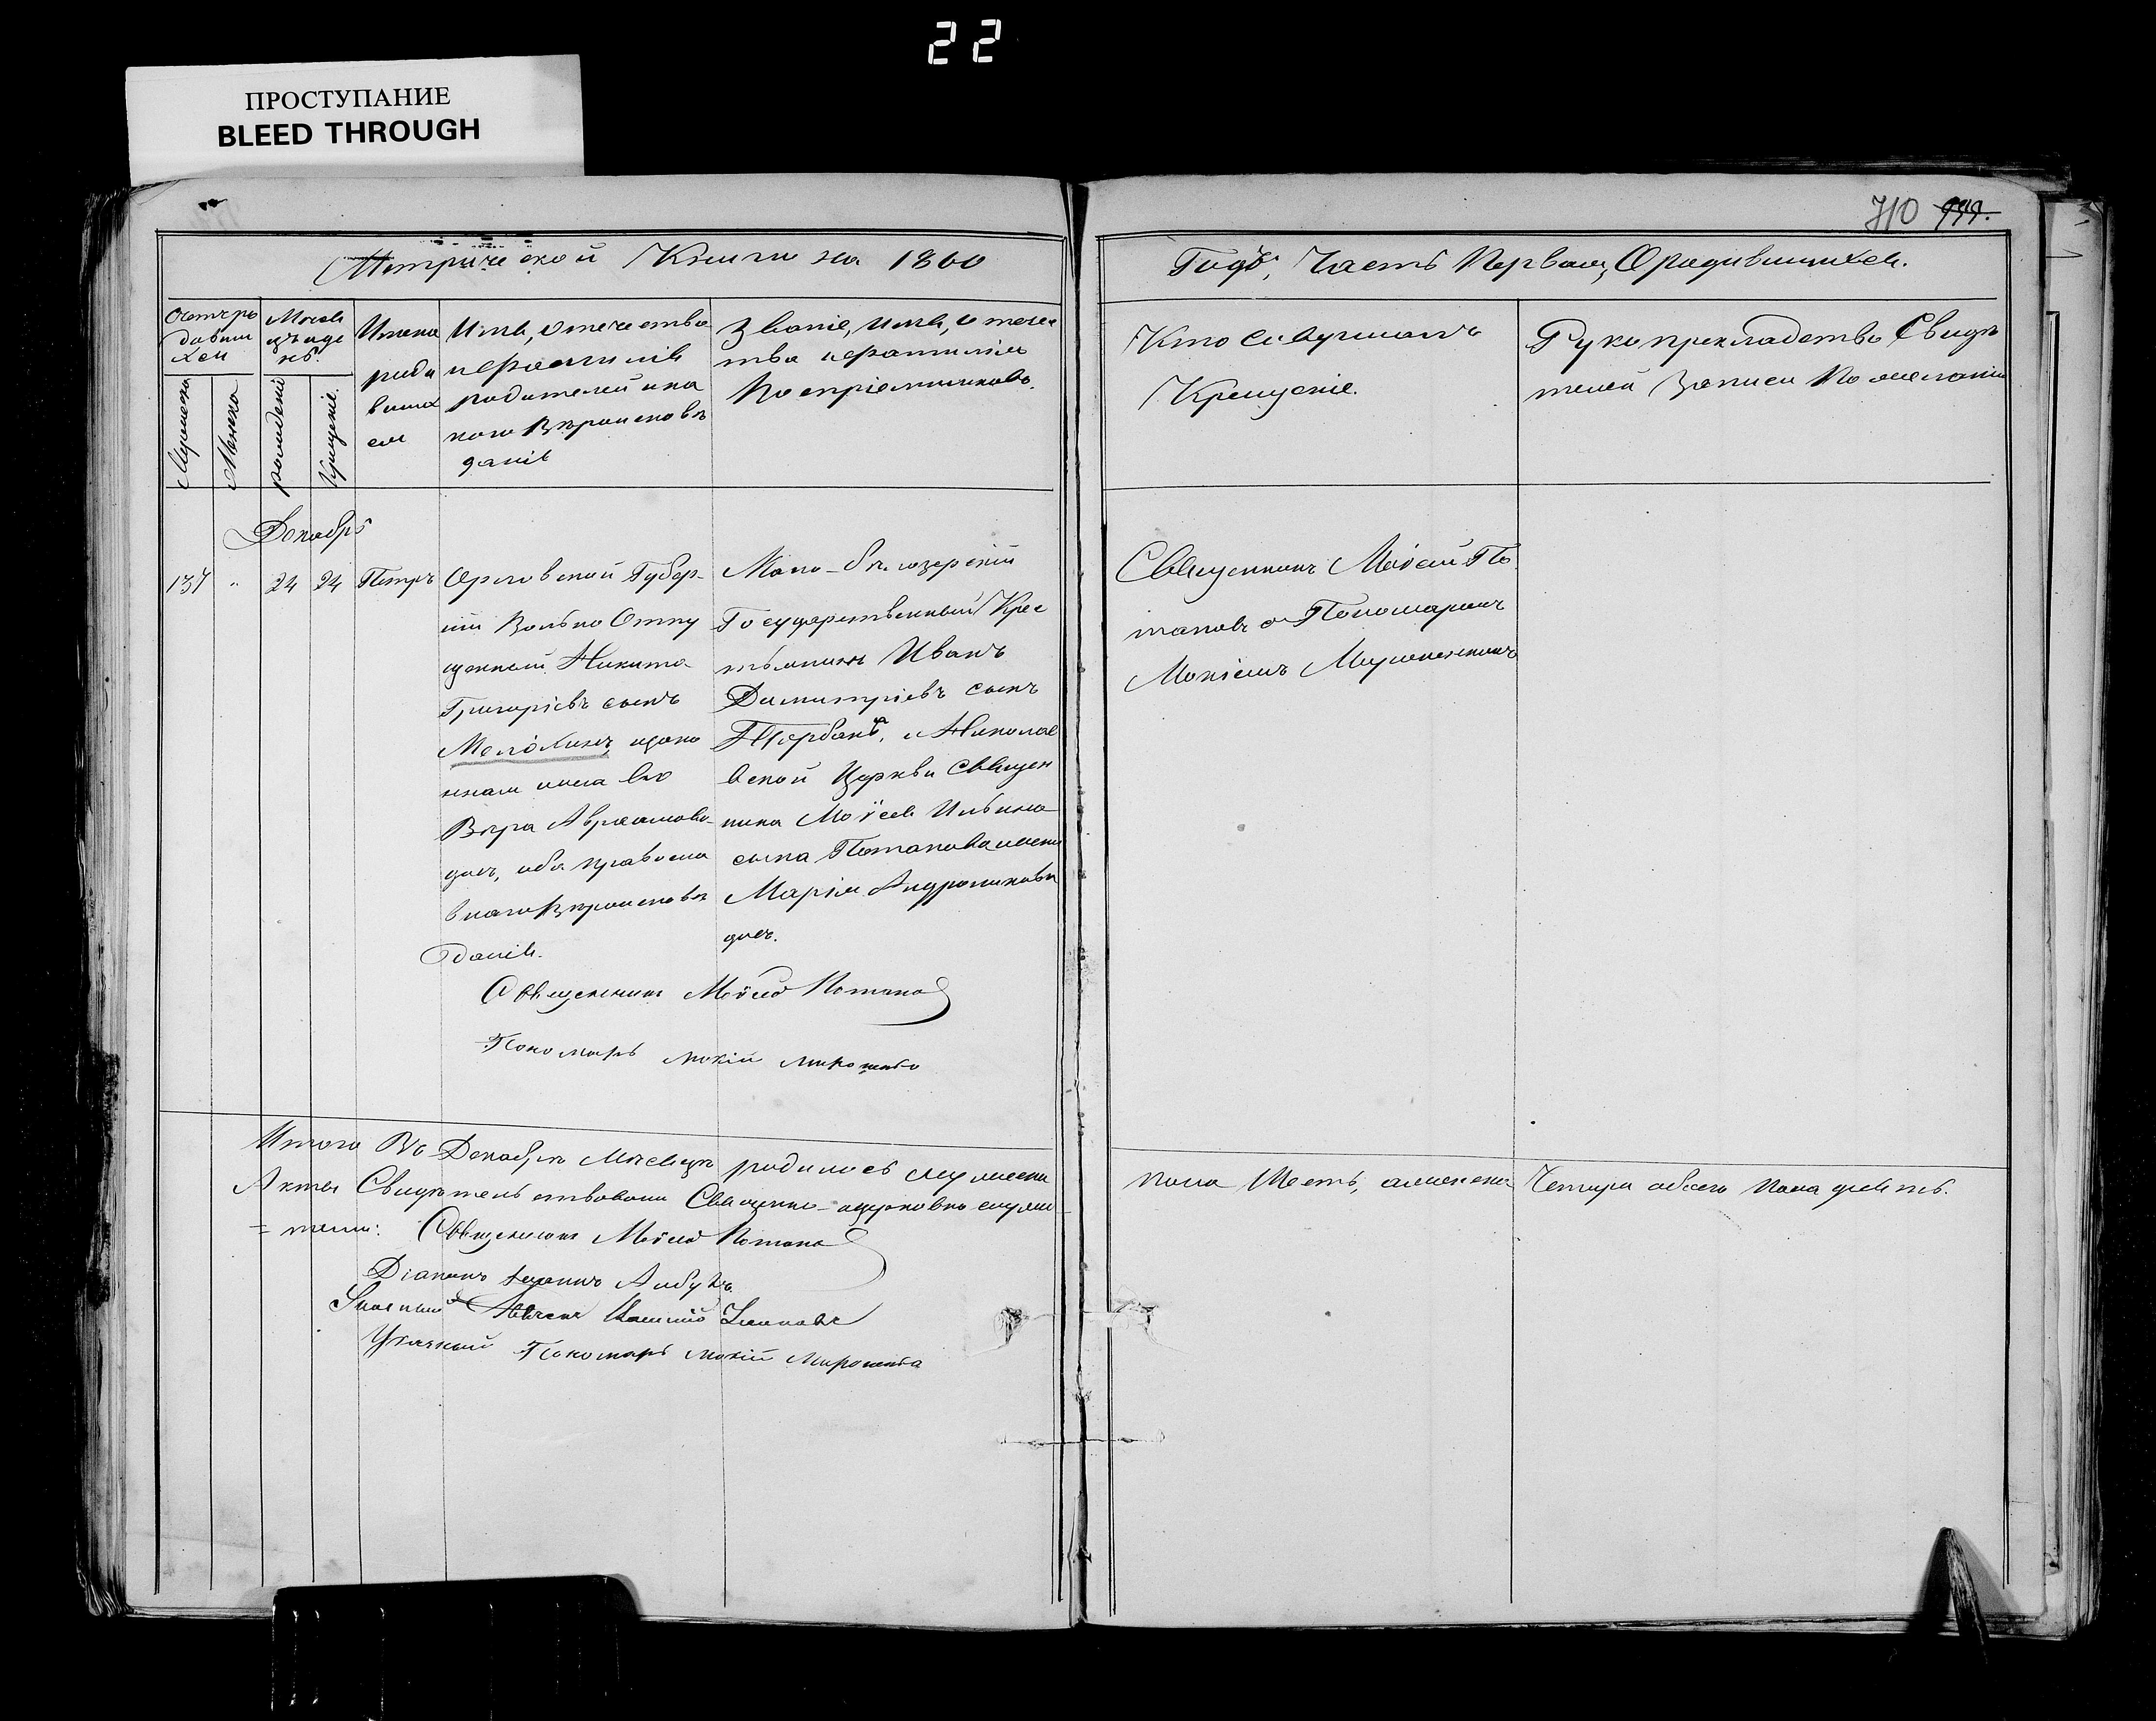 22
ПРОСТУПАНИЕ
BLEED THROUGH
710 999.
Метрической Книги на 1860
Годъ, Часть Первая, О родившихся.
Счетъ ро
дивши
хся
Мужеска
Женска
Месяцъ и де
нь.
рожденія
Крещенія.
Имена
роди
вших
ся
Имя, Отечество
и фамилія
родителей и ка
кого Вѣроисповѣ
данія
Званіе, имя, отечес
тво и фамилія
Воспріемниковъ.
Кто совершалъ
Крещеніе.
Рукоприкладство Свидѣ
телей Записи По желанію
Декабрь
137 " 24 24 Петръ
Орловской Губер-
ніи Вольно Отпу
щенный Никита
Григоріевъ сынъ
законная жена его
Вѣра Авраамова
дочь, оба правосла
внаго Вѣроисповѣ
данія.
Мало-бѣлозерскій
Государственный Крес
тьянинъ Иванъ
Димитріевъ сынъ
Щербакъ, и Николае
вской Церкви Священ
ника Моѵсея Ильина
сына Потапова жена
Марія Андроникова
дочь.
Священникъ Моѵсей По
таповъ съ Пономаремъ
Мокіемъ
Священникъ Моѵсей Потапов
Пономарь Мокій
Итого Въ Декабрѣ Месяцѣ родилось мужеска
пола Шесть, а женска Четыре обоего пола десять.
Акты Свидѣтельствовали Священно-церковно служи
= тели: Священникъ Моѵсей Потапов
Діаконъ
Указный Пономарь Мокій